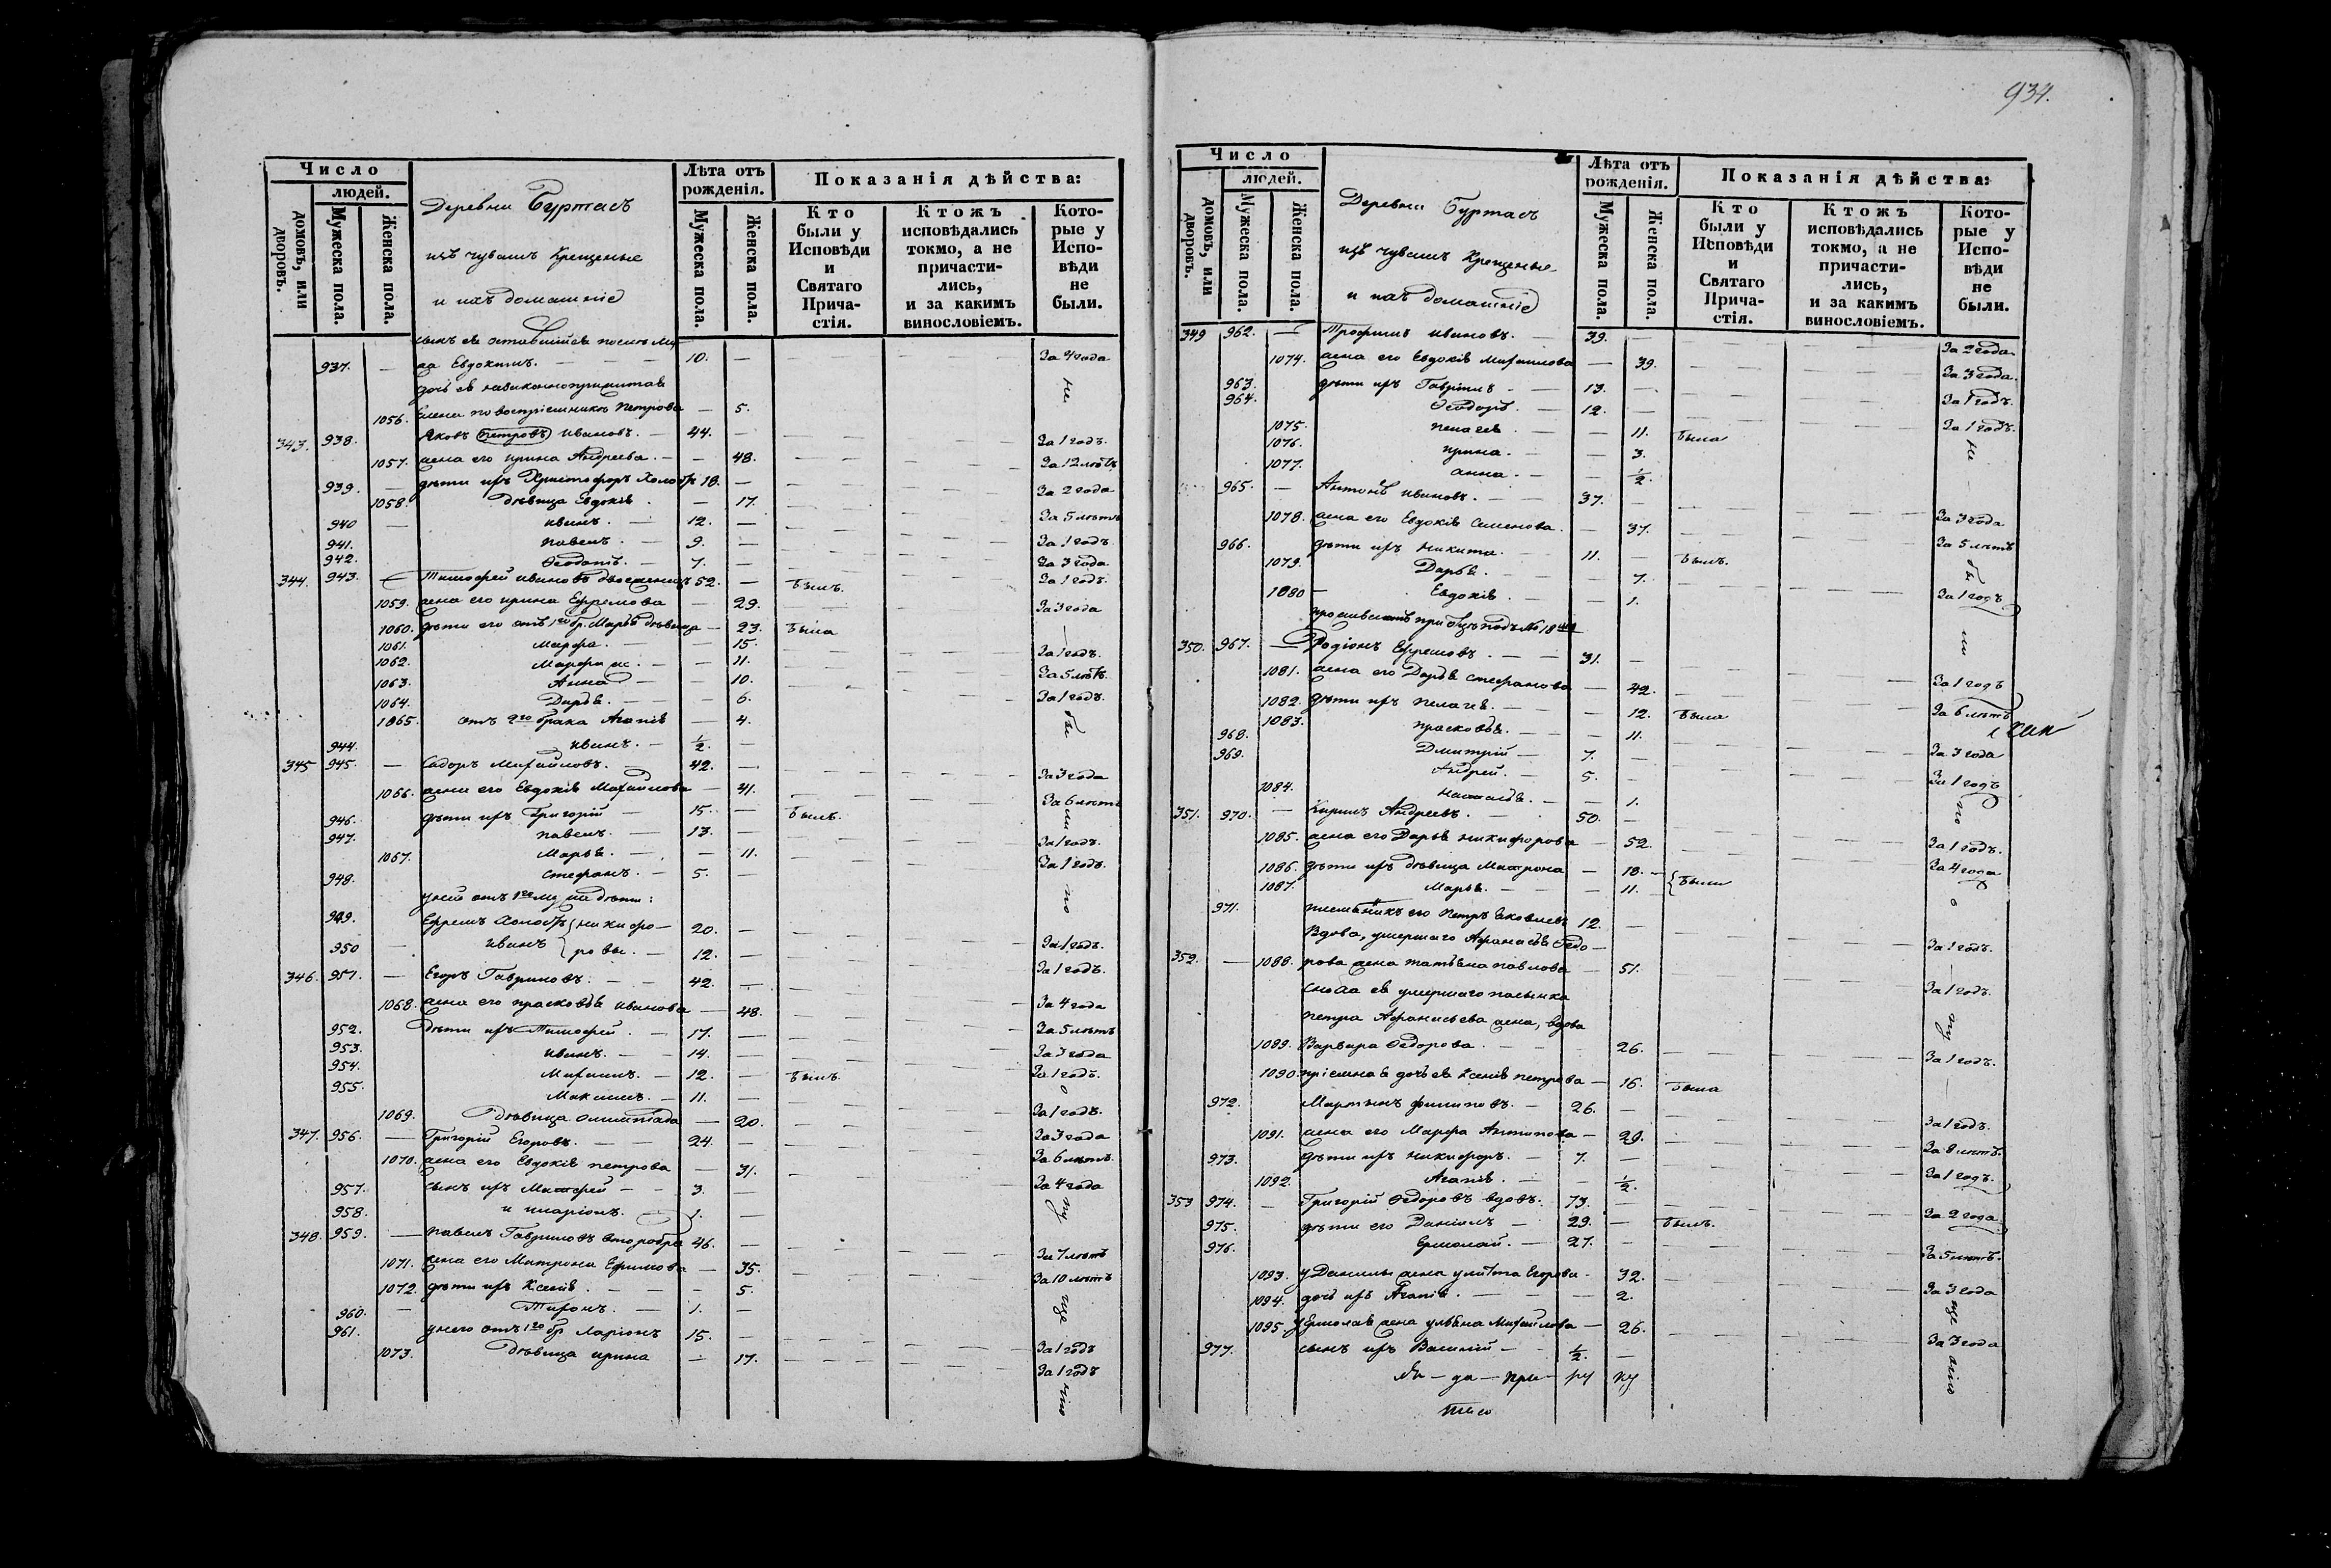 Число
людей.
домовъ, или дворовъ.
Мужеска пола.
Женска пола.
Деревни Буртасъ
изъ чувашъ Крещеные
и ихъ домашніе
Лѣта отъ рожденія.
Мужеска пола.
Женска пола.
Показанія дѣйства:
Кто были у Исповѣди и Святаго Причастія.
Ктожъ исповѣдались токмо, а не причастились, и за какимъ винословіемъ.
Которые у Исповѣди не были.
сынъ ея оставшійся послѣ му
937. — жа Евдокимъ. — 10. — За 4 года
дочь ея незаконноприжитая
1056. Елена по воспріемнику Петрова — 5.
343. 938. Яковъ Петровъ Ивановъ. — 44. — За 1 годъ.
1057. жена его Ирина Андреева. — 48. За 12 лѣтъ
939. — дѣти ихъ Христофоръ Холостъ 18. — За 2 года
1058. дѣвица Евдокія. — 17. За 5 лѣтъ
940 — Иванъ. — 12. — За 1 годъ
941. Павелъ. — 9. — За 3 года
942. Ѳеодотъ. — 7. — За 1 годъ.
344. 943. — Тимофей Ивановъ двоеженецъ 52. — былъ.
1059. жена его Ирина Ефремова — 29. За 3 года
1060. дѣти его отъ 1го бр. Марья дѣвица — 23. была
1061. Марфа. — 15. За 1 годъ.
1062. Марфа ж. — 11. За 5 лѣтъ.
1063. Анна — 10. За 1 годъ.
1064. Дарья. — 6.
1065. отъ 2го брака Агапія — 4.
944. Иванъ. — ½. —
345 945. — Сидоръ Михайловъ. — 42. — За 3 года
1066. жена его Евдокія Михайлова — 41. За 6 лѣтъ
946. дѣти ихъ Григорій — 15. — былъ.
947. Павелъ. — 13. — За 1 годъ.
1067. Марья. — 11. За 1 годъ.
948. Стефанъ. — 5. —
у ней отъ 1го мужа дѣти:
949. Ефремъ Холостъ { Никифо- 20. — За 1 годъ.
950 — Иванъ { ровы. — 12. — За 1 годъ.
346. 951. — Егоръ Гавриловъ. — 42. — За 4 года
1068. жена его Прасковья Иванова — 48. За 5 лѣтъ
952. дѣти ихъ Тимофей. — 17. — За 3 года
953. Иванъ. — 14. — За 1 годъ.
954. Михаилъ. — 12. — былъ.
955. Максимъ. — 11. — За 1 годъ.
1069. дѣвица Олимпіада — 20. За 3 года
347. 956. — Григорій Егоровъ. — 24. — За 6 лѣтъ.
1070. жена его Евдокія Петрова — 31. За 4 года
957. сынъ ихъ Матфей — 3. —
958. и Иларіонъ. — 1. —
348. 959. — Павелъ Гавриловъ второбра 46. — За 7 лѣтъ
1071. жена его Матрона Ефимова — 35. За 10 лѣтъ
1072. дѣти ихъ Ксенія. — 5.
960. — Тихонъ. — 1. —
961. у него отъ 1го бр Ларіонъ 15. — За 1 годъ
1073. дѣвица Ирина — 17. За 1 годъ
934.
Число
людей.
домовъ, или дворовъ.
Мужеска пола.
Женска пола.
Деревни Буртасъ
изъ чувашъ Крещеные
и ихъ домашніе
Лѣта отъ рожденія.
Мужеска пола.
Женска пола.
Показанія дѣйства:
Кто были у Исповѣди и Святаго Причастія.
Ктожъ исповѣдались токмо, а не причастились, и за какимъ винословіемъ.
Которые у Исповѣди не были.
349 962. — Трофимъ Ивановъ. — 39. — За 2 года
1074. жена его Евдокія Михайлова — 39. За 3 года.
963. дѣти ихъ Гаврилъ — 13. — За 1 годъ.
964. Ѳеодоръ. — 12. — За 1 годъ.
1075. Пелагея. — 11. была
1076. Ирина. — 3.
1077. Анна. — ½.
965. — Антонъ Ивановъ. — 37. — За 3 года
1078. жена его Евдокія Семенова. — 37. За 5 лѣтъ
966. дѣти ихъ Никита. — 11. — былъ.
1079. Дарья. — 7. За 1 годъ
1080 — Евдокія. — 1.
350. 967. — Родіонъ Ефремовъ. — 31. — За 1 годъ
1081. жена его Дарья Стефанова — 42. За 6 лѣтъ
1082. дѣти ихъ Пелагея. — 12. была
1083. Прасковья. — 11. За 3 года
968. Дмитрій — 7. — За 1 годъ
969. Андрей. — 5. —
1084. Наталья. — 1.
351. 970. — Кирилъ Андреевъ. — 50. — За 1 годъ.
1085. жена его Дарья Никифорова — 52. За 4 года
1086. дѣти ихъ дѣвица Матрона — 18. { были
1087. Марья. — 11.
971. племянникъ его Петръ Яковлевъ 12. — За 1 годъ.
Вдова, умершаго Афанасья Ѳедо-
352. — 1088. рова жена Татьяна Павлова — 51. За 1 годъ.
сноха ея умершаго пасынка
Петра Афанасьева жена, вдова
1089. Варвара Ѳедорова. — 26. За 1 годъ.
1090. пріемная дочь ея Ксенія Петрова — 16. была
972. Мартынъ Филиповъ. — 26. — За 1 годъ.
1091. жена его Марфа Антонова — 29. За 8 лѣтъ.
973. дѣти ихъ Никифоръ. — 7. — За 1 годъ.
1092. Агапія. — ½.
353 974. — Григорій Ѳедоровъ вдовъ. 73. — За 2 года
975. дѣти его Даніилъ — 29. — былъ.
976. Ермолай. — 27. — За 5 лѣтъ.
1093. у Данилы жена Улита Егорова. 32. За 3 года
1094. дочь ихъ Агапія. — 2.
1095 у Ермолая жена Ульяна Михайлова — 26. За 3 года
977. сынъ ихъ Василій — ½. —